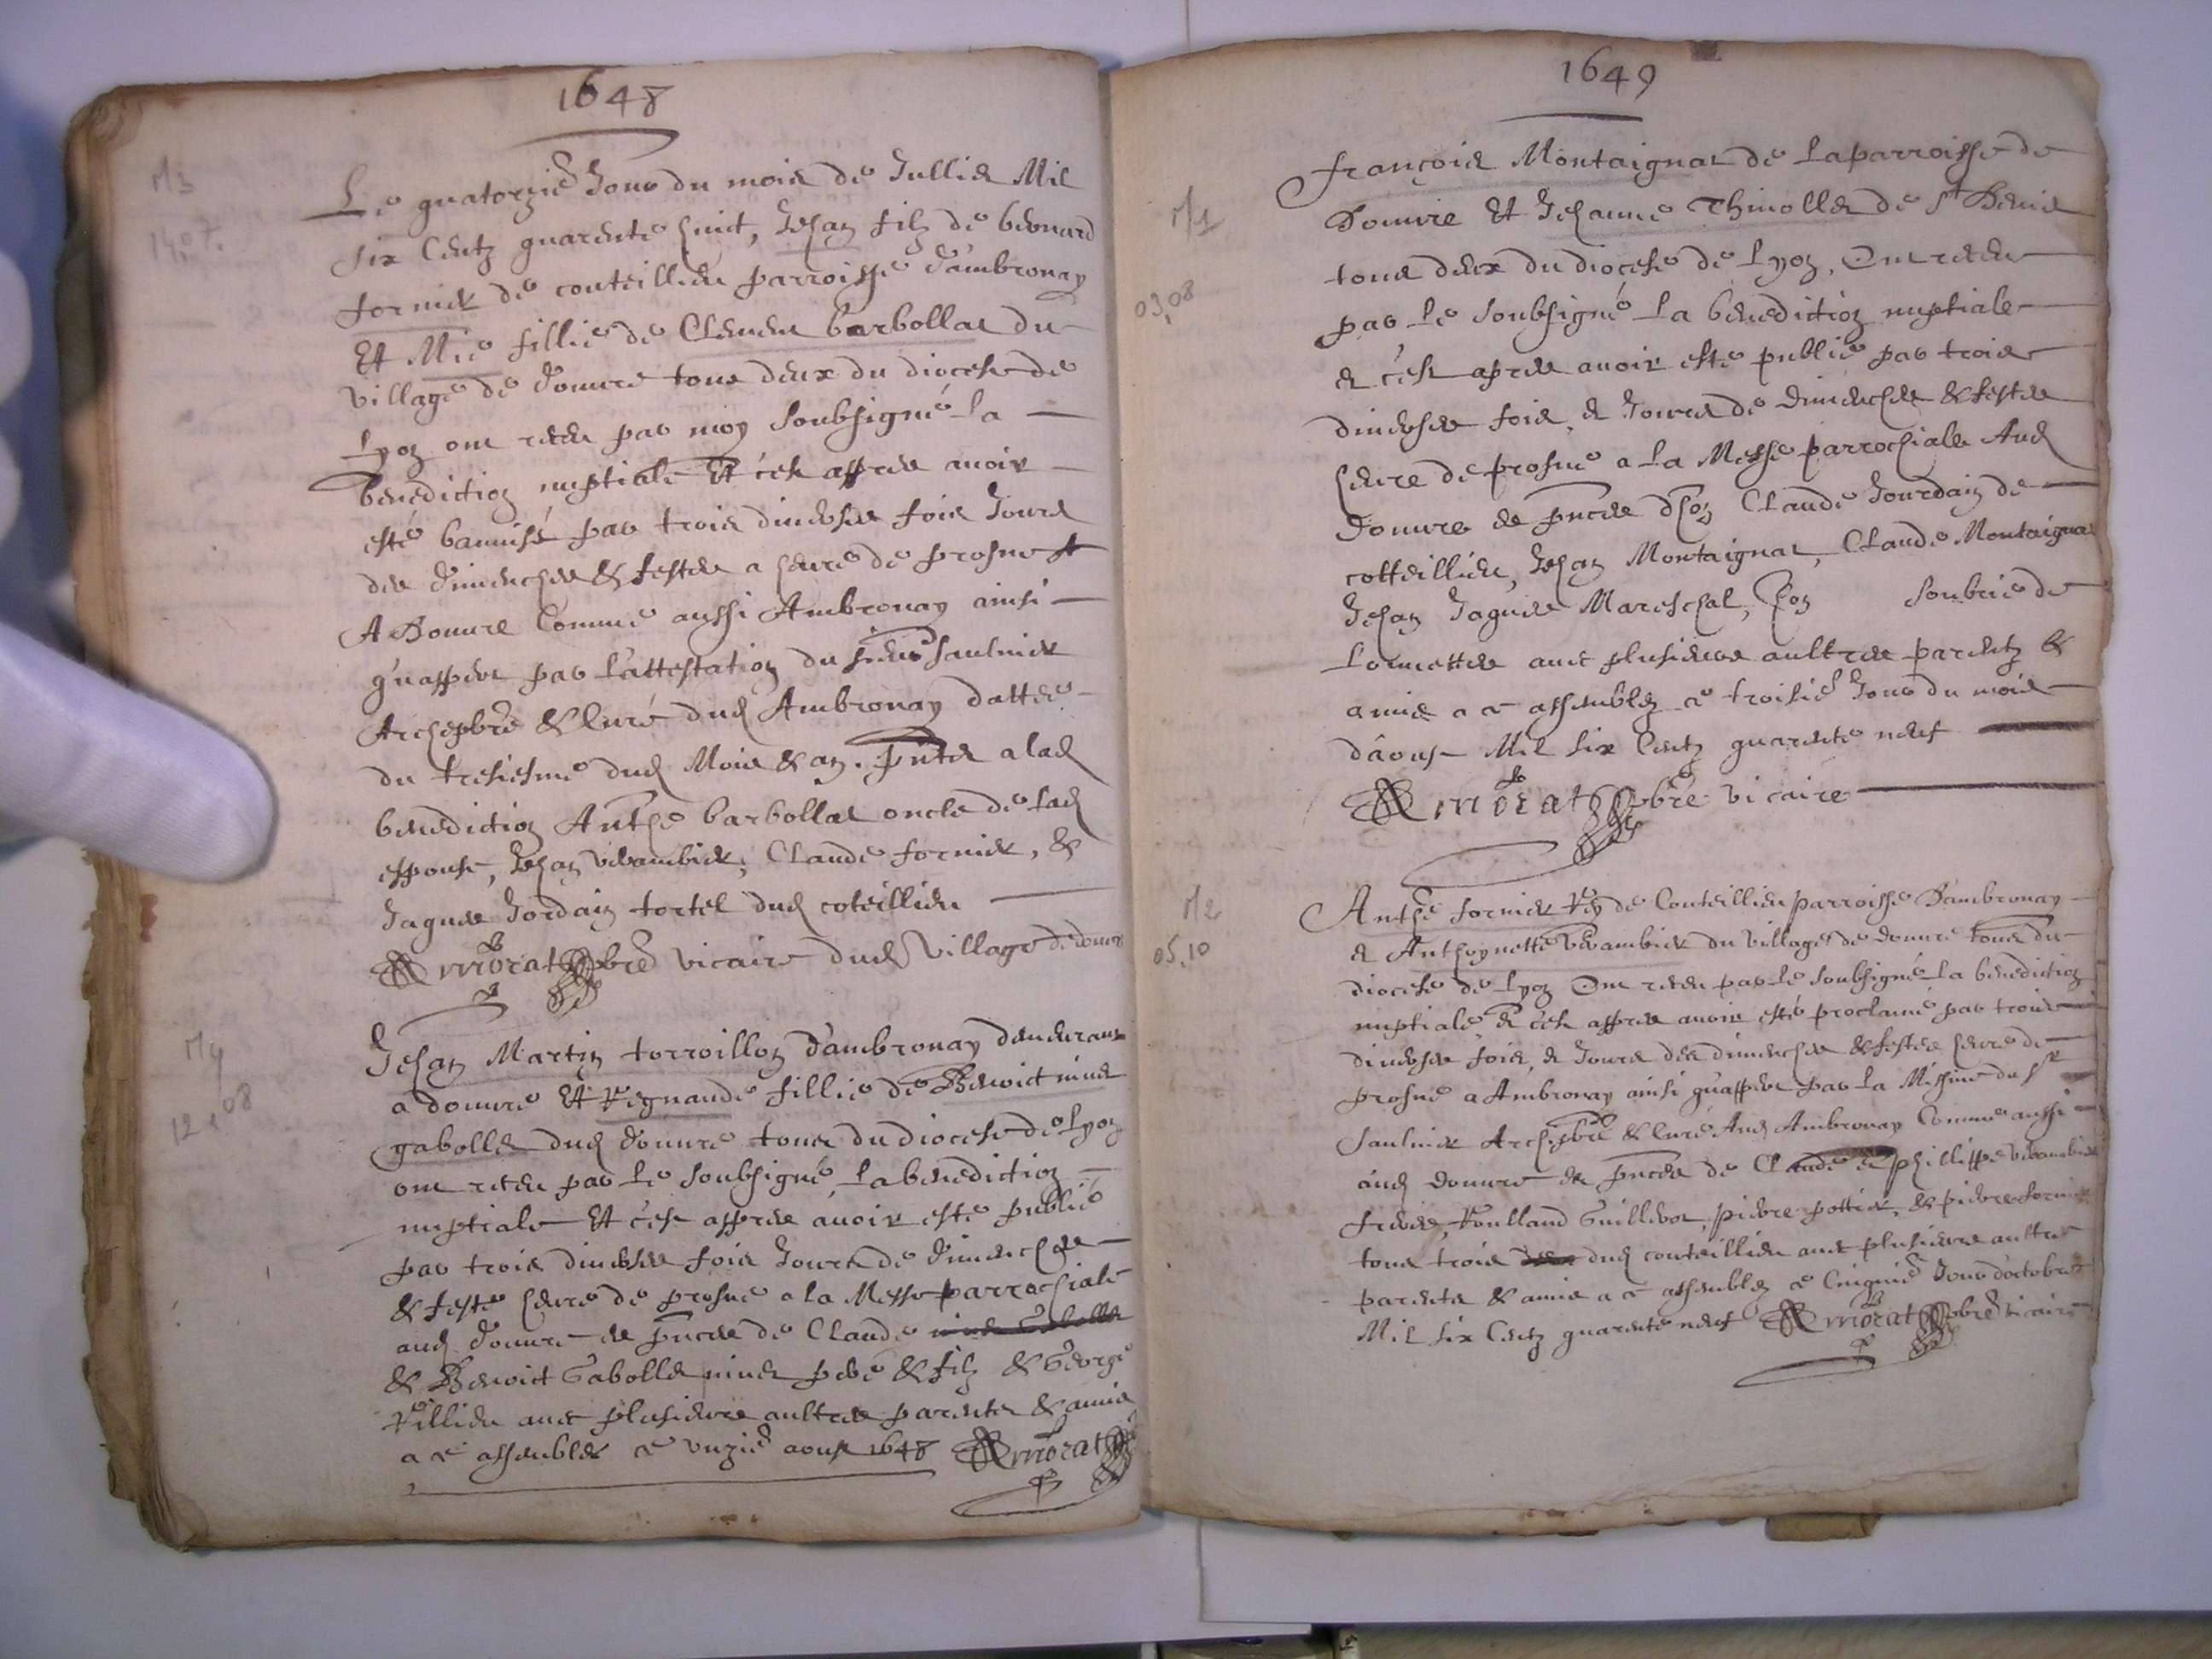 1648
M3
14.07.
Le quatorziē Jour du mois de Jullier Mil
six Centz quarente huict, Jehan filz de bernard
fornier de couteillieu parroisse d'ambronay
Et Mie fillie de Clement barbollat du
village de douure tous deux du diocese de
Lyon ont receu par moy soubsigné la
benediction nuptiale Et c'est appres auoir
esté bannisé par trois diuerses fois Jours
des dimenches & festes a heure de prosne
A Douure Comme aussi Ambronay ainsi
qu'appert par l'attestation du sieur Saulnier
Archepbre & Curé dud Ambronay dattée
du tresiesme dud Mois & an. Pntz a lad
benediction Anthe barbollat oncle de lad
espouse, Jehan Vuambier, Claude fornier, &
Jaques Jordain tortel dud coteillieu
A morat pbre vicaire dud Village de douure
M4
12.08
Jehan Martin torroillon d'ambronay demeurant
a douure Et Regnaude fillie de Benoict niuet
gabollet dud douure tous du diocese de Lyon
ont receu par Le soubsigné, la benediction
nuptiale Et c'est appres auoir esté publié
par trois diuerses fois Jours de dimenches
& feste heure de prosne a la Messe parrochiale
aud douure es pnces de Claude
& Benoict Gabollet niuet pere & filz & George
Rillieu auec plusieurs aultres parentz & amis
a ce assemblez ce unziē aoust 1648 A morat
1649
M1
03.08
françois Montaignat de La parroisse de
Douure Et Jehanne Thinollet de St Denis
tous deux du diocese de Lyon, Ont receu
par Le soubsigné La benediction nuptiale
et c'est apres auoir esté publié par trois
diuerses fois, et Jours de dimenches & festes
heure de prosne a la Messe parrochiale Aud
Douure es pnces d'hon Claude Jourdain de
cotteillieu, Jehan Montaignat, Claude Montaignat
Jehan Jaques Mareschal, hon soubrié de
Lormettes auec plusieurs aultres parentz &
amis a ce assemblez ce troisiē Jour du mois
d'aoust Mil six Centz quarente neuf
A morat pbre vicaire
M2
05.10
Anthe fornier Rey de Couteillieu parroisse D'ambronay
et Anthoynette Vuambier du village de douure tous du
diocese de Lyon Ont receu par Le soubsigné La benediction
nuptiale et c'est appres auoir esté proclamé par trois
diuerses fois, et Jours des dimenches & festes heure de
prosne a Ambronay ainsi qu'appert par La Missiue du Sr
Saulnier Archepbre & Curé Aud Ambronay Comme aussi
aud Douure es pnces de Claude et phillippe Vuambier
freres, Roulland Guillerot, pierre pottier, & pierre fornier
tous trois dud couteillieu auec plusieurs aultres
parents & amis a ce assemblez ce Cinquiē Jour d'octobre
Mil six Centz quarente neuf A morat pbre vicaire